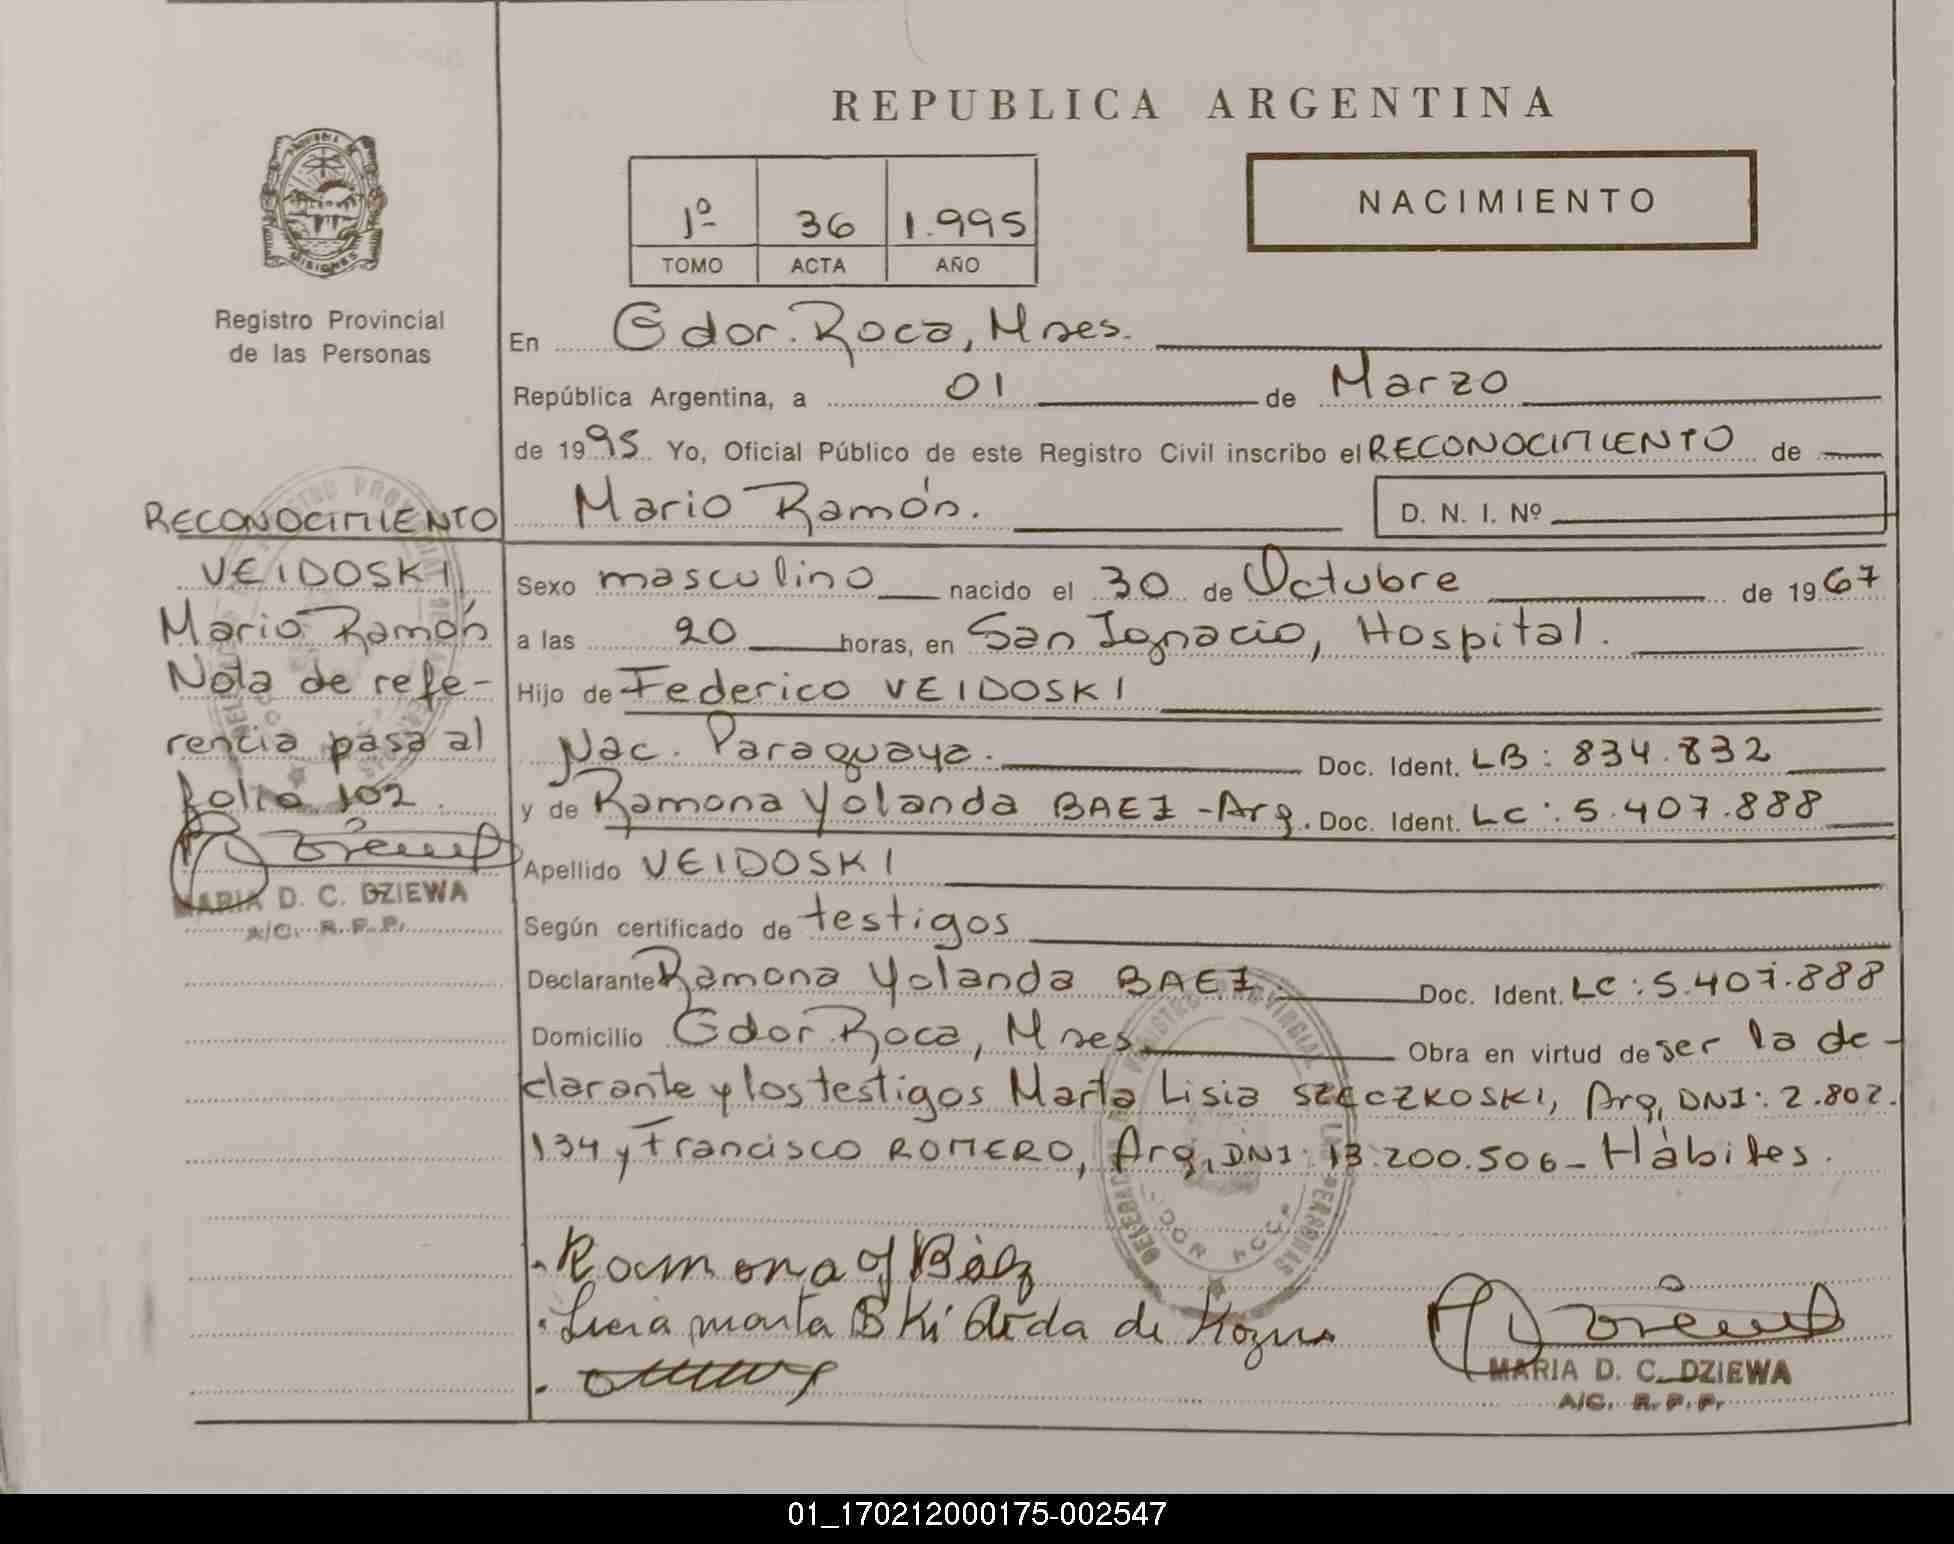 REPUBLICA ARGENTINA
NACIMIENTO
1º 36 1.995
TOMO ACTA AÑO
PROVINCIA DE
MISIONES
Registro Provincial
de las Personas
En Gdor. Roca, Mnes.
República Argentina, a 01 de Marzo
de 1995 Yo, Oficial Público de este Registro Civil inscribo el RECONOCIMIENTO de
Mario Ramón. D. N. I. Nº
Sexo masculino nacido el 30 de Octubre de 1967
a las 20 horas, en San Ignacio, Hospital.
Hijo de Federico VEIDOSKI
Nac. Paraguaya. Doc. Ident. LB: 834.832
y de Ramona Yolanda BAEZ - Arg. Doc. Ident. LC: 5.407.888
Apellido VEIDOSKI
Según certificado de testigos
Declarante Ramona Yolanda BAEZ. Doc. Ident. LC: 5.407.888
Domicilio Gdor. Roca, Mnes. Obra en virtud de ser la de-
clarante y los testigos Marta Lisia SZECZKOSKI, Arg, DNI: 2.802.
134 y Francisco ROMERO, Arg, DNI: 13.200.506 - Hábiles.
RECONOCIMIENTO
VEIDOSKI
Mario Ramón
Nota de refe-
rencia pasa al
folio 102.
MARIA D. C. DZIEWA
A/C. R. P. P.
Ramona Y Báez
marta
de
MARIA D. C. DZIEWA
A/C. R. P. P.
01_170212000175-002547